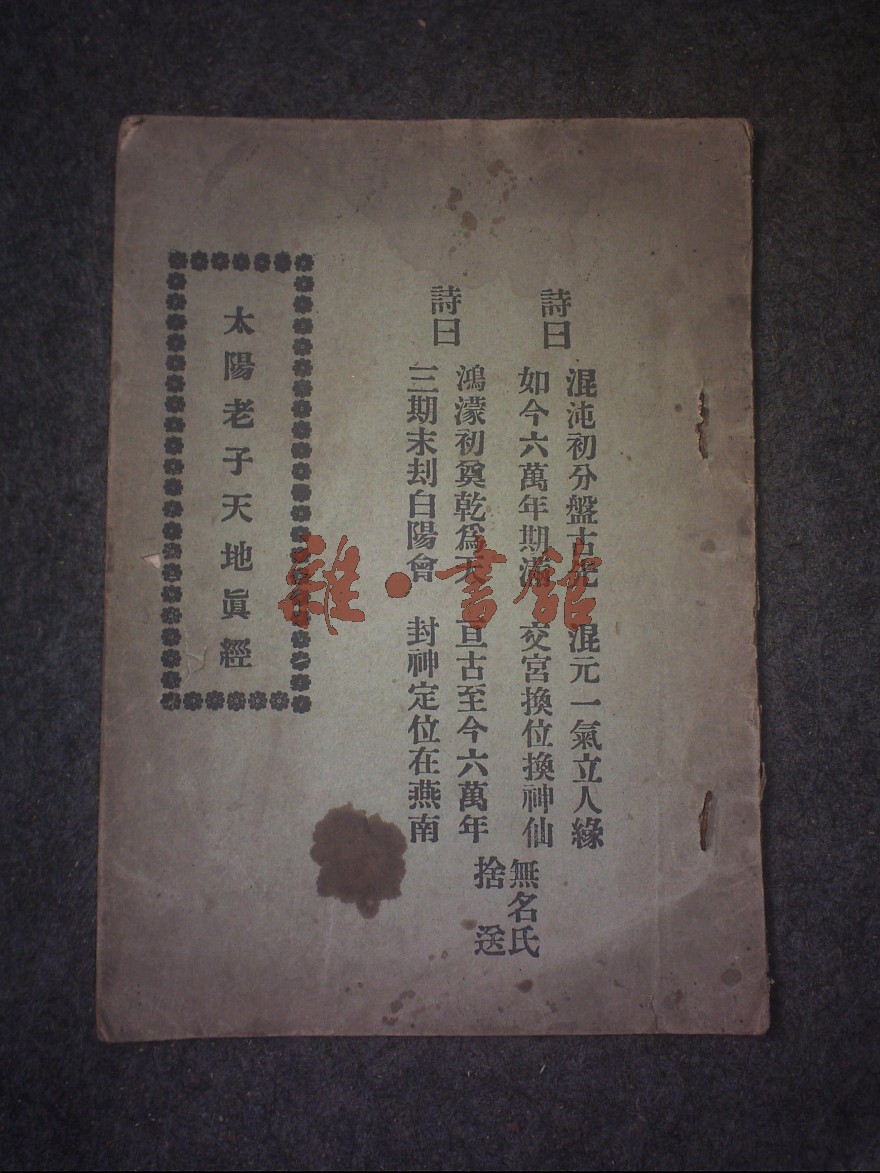 詩曰
混沌初分盤古先 混元一氣立人緣
如今六萬年期滿 交宮換位換神仙
詩曰
鴻濛初奠乾爲天 亘古至今六萬年
三期末刦白陽會 封神定位在燕南
無名氏
捨送
太陽老子天地眞經
雜·書館